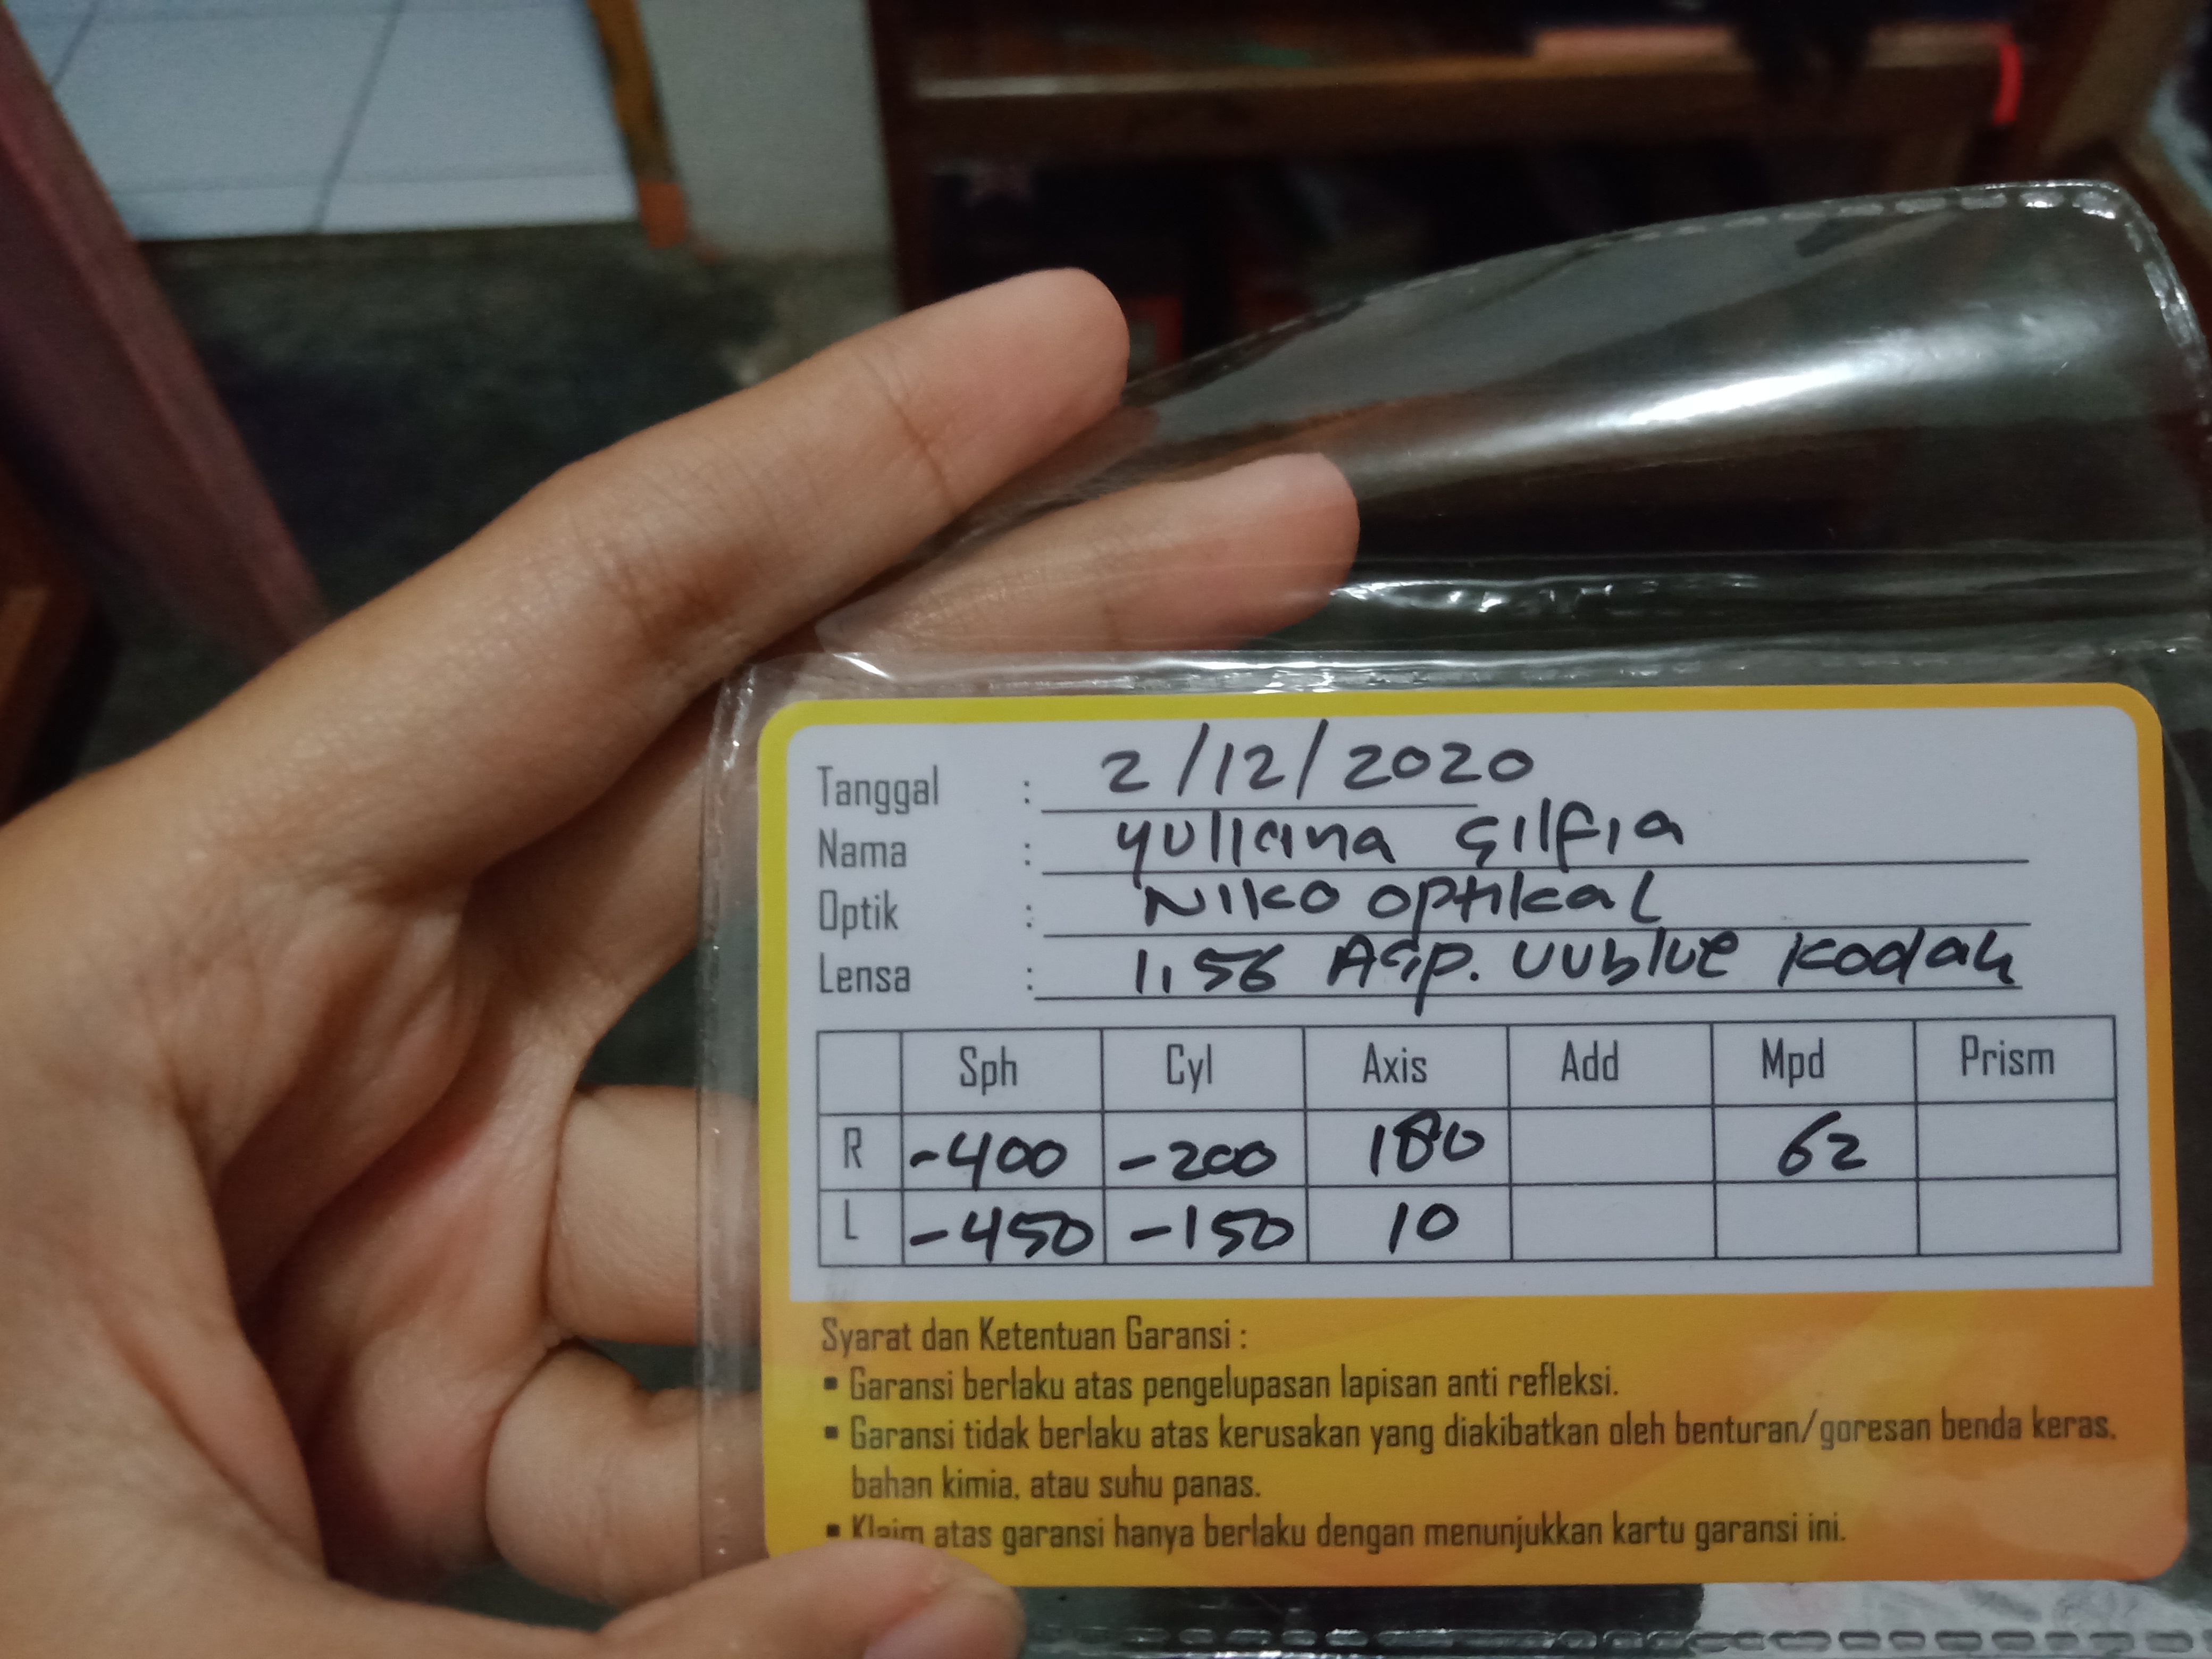 Tanggal : 2/12/2020
Nama : yuliana Silfia
Optik : Niko optikal
Lensa : 1,56 Asp. UVblue Kodak
Sph Cyl Axis Add Mpd Prism
R -400 -200 180 62
L -450 -150 10
Syarat dan Ketentuan Garansi :
▪ Garansi berlaku atas pengelupasan lapisan anti refleksi.
▪ Garansi tidak berlaku atas kerusakan yang diakibatkan oleh benturan/goresan benda keras,
bahan kimia, atau suhu panas.
▪ Klaim atas garansi hanya berlaku dengan menunjukkan kartu garansi ini.